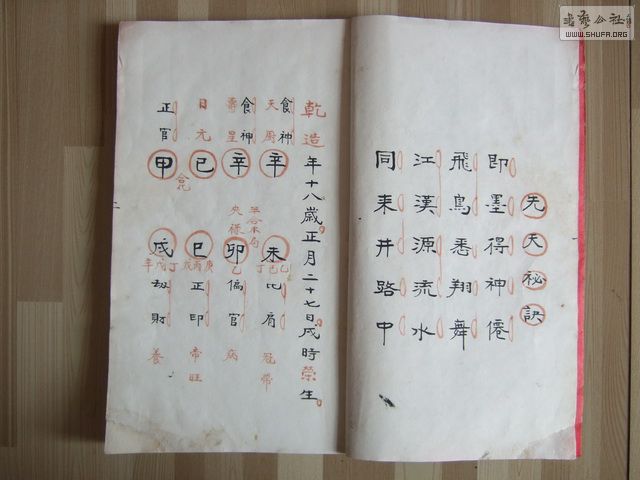 先天祕訣
即墨得神僊
飛鳥悉翔舞
江漢源流水
同來井路中
乾造年十八歲正月二十七日戌時榮生
食神 天廚 辛 未 乙己丁 比肩 冠帶
食神 壽星 辛 卯 乙 偏官 病
日元 己 巳 庚丙戊 正印 帝旺
正官 甲 戌 丁戊辛 劫財 養
合化
WWW.SHUFA.ORG